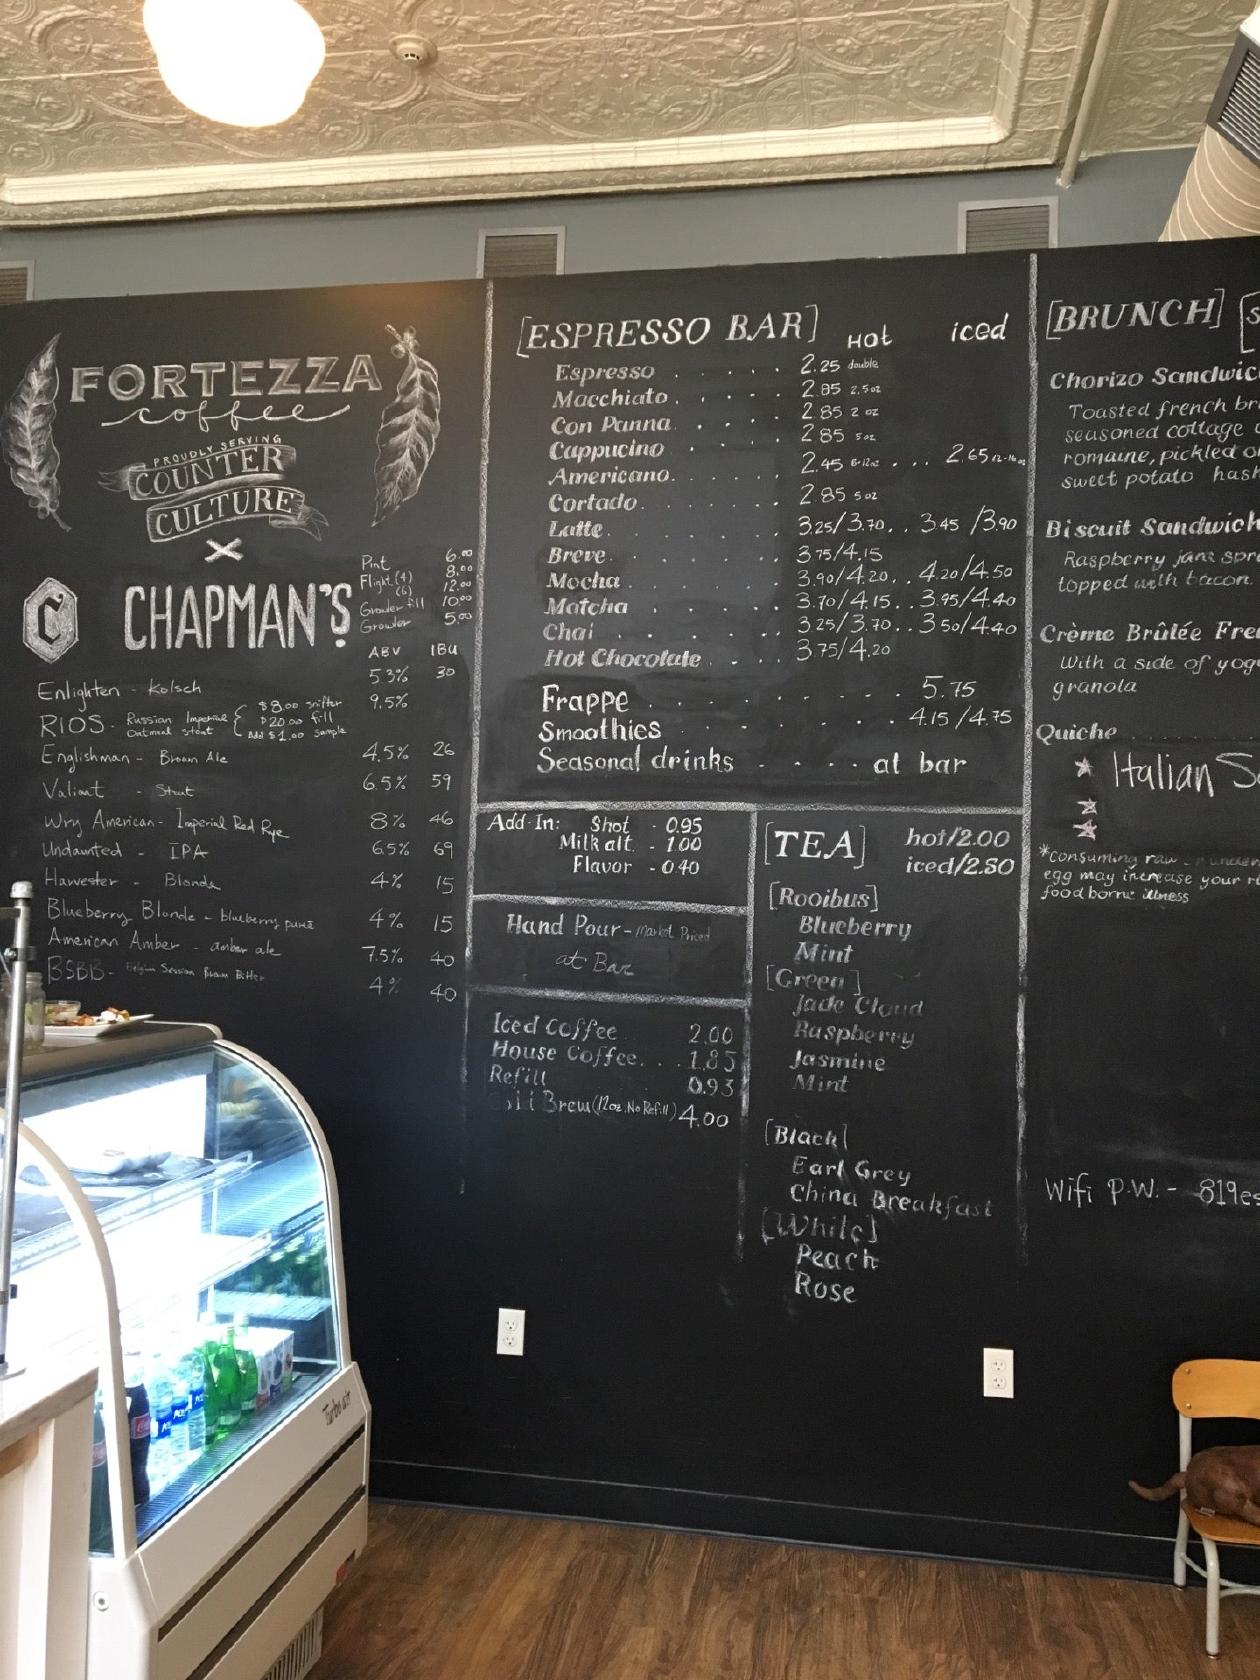 FORTEZZA
coffee
PROUDLY SERVING
COUNTER
CULTURE
X
C CHAPMAN'S
Pint 6.00
Flight (4) 8.00
(6) 12.00
Growler fill 10.00
Growler 5.00
ABV IBU
Enlighten - Kolsch 5.3% 30
RIOS - Russian Imperial Oatmeal stout 9.5%
$8.00 snifter
$20.00 fill
Add $1.00 sample
Englishman - Brown Ale 4.5% 26
Valiant - Stout 6.5% 59
Wry American - Imperial Red Rye 8% 46
Undaunted - IPA 6.5% 69
Hawester - Blonde 4% 15
Blueberry Blonde - blueberry puree 4% 15
American Amber - amber ale 7.5% 40
BSBB - Belgian Session Brown Bitter 4% 40
[ESPRESSO BAR] Hot iced
Espresso . . . . . 2.25 double
Macchiato . . . . . 2.85 2.5oz
Con Panna . . . . 2.85 2 oz
Cappucino . . . . 2.85 5oz
Americano . . . . 2.45 8-12oz . . . . 2.65 12-16oz
Cortado . . . . 2.85 5oz
Latte . . . . . 3.25/3.70 . . 3.45/3.90
Breve . . . . . 3.75/4.15
Mocha . . . . 3.90/4.20 . . 4.20/4.50
Matcha . . . . 3.70/4.15 . . 3.95/4.40
Chai . . . . . 3.25/3.70 . . 3.50/4.40
Hot Chocolate . . . 3.75/4.20
Frappe . . . . . . . 5.75
Smoothies . . . . . . 4.15/4.75
Seasonal drinks - . . . at bar
Add-In: Shot - 0.95
Milk alt. - 1.00
Flavor - 0.40
Hand Pour - Market Priced
at Bar
Iced Coffee 2.00
House Coffee . . . 1.85
Refill 0.93
Brew (12oz. No Refill) 4.00
[TEA] hot/2.00
iced/2.50
[Rooibus]
Blueberry
Mint
[Green]
Jade Cloud
Raspberry
Jasmine
Mint
[Black]
Earl Grey
China Breakfast
[White]
Peach
Rose
[BRUNCH]
Chorizo Sandwic
Toasted french br
seasoned cottage
romaine, pickled o
sweet potato hash
Biscuit Sandwich
Raspberry jam spr
topped with bacon
Crème Brûlée Fre
With a side of yog
granola
Quiche
Italian S
*consuming raw or under
egg may increase your ri
food borne illness
Wifi P.W. - 819es
Turbo air